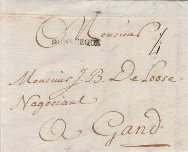 Monsieur
DUNKERQUE
Monsieur J.B. De Loose
Negociant
a Gand